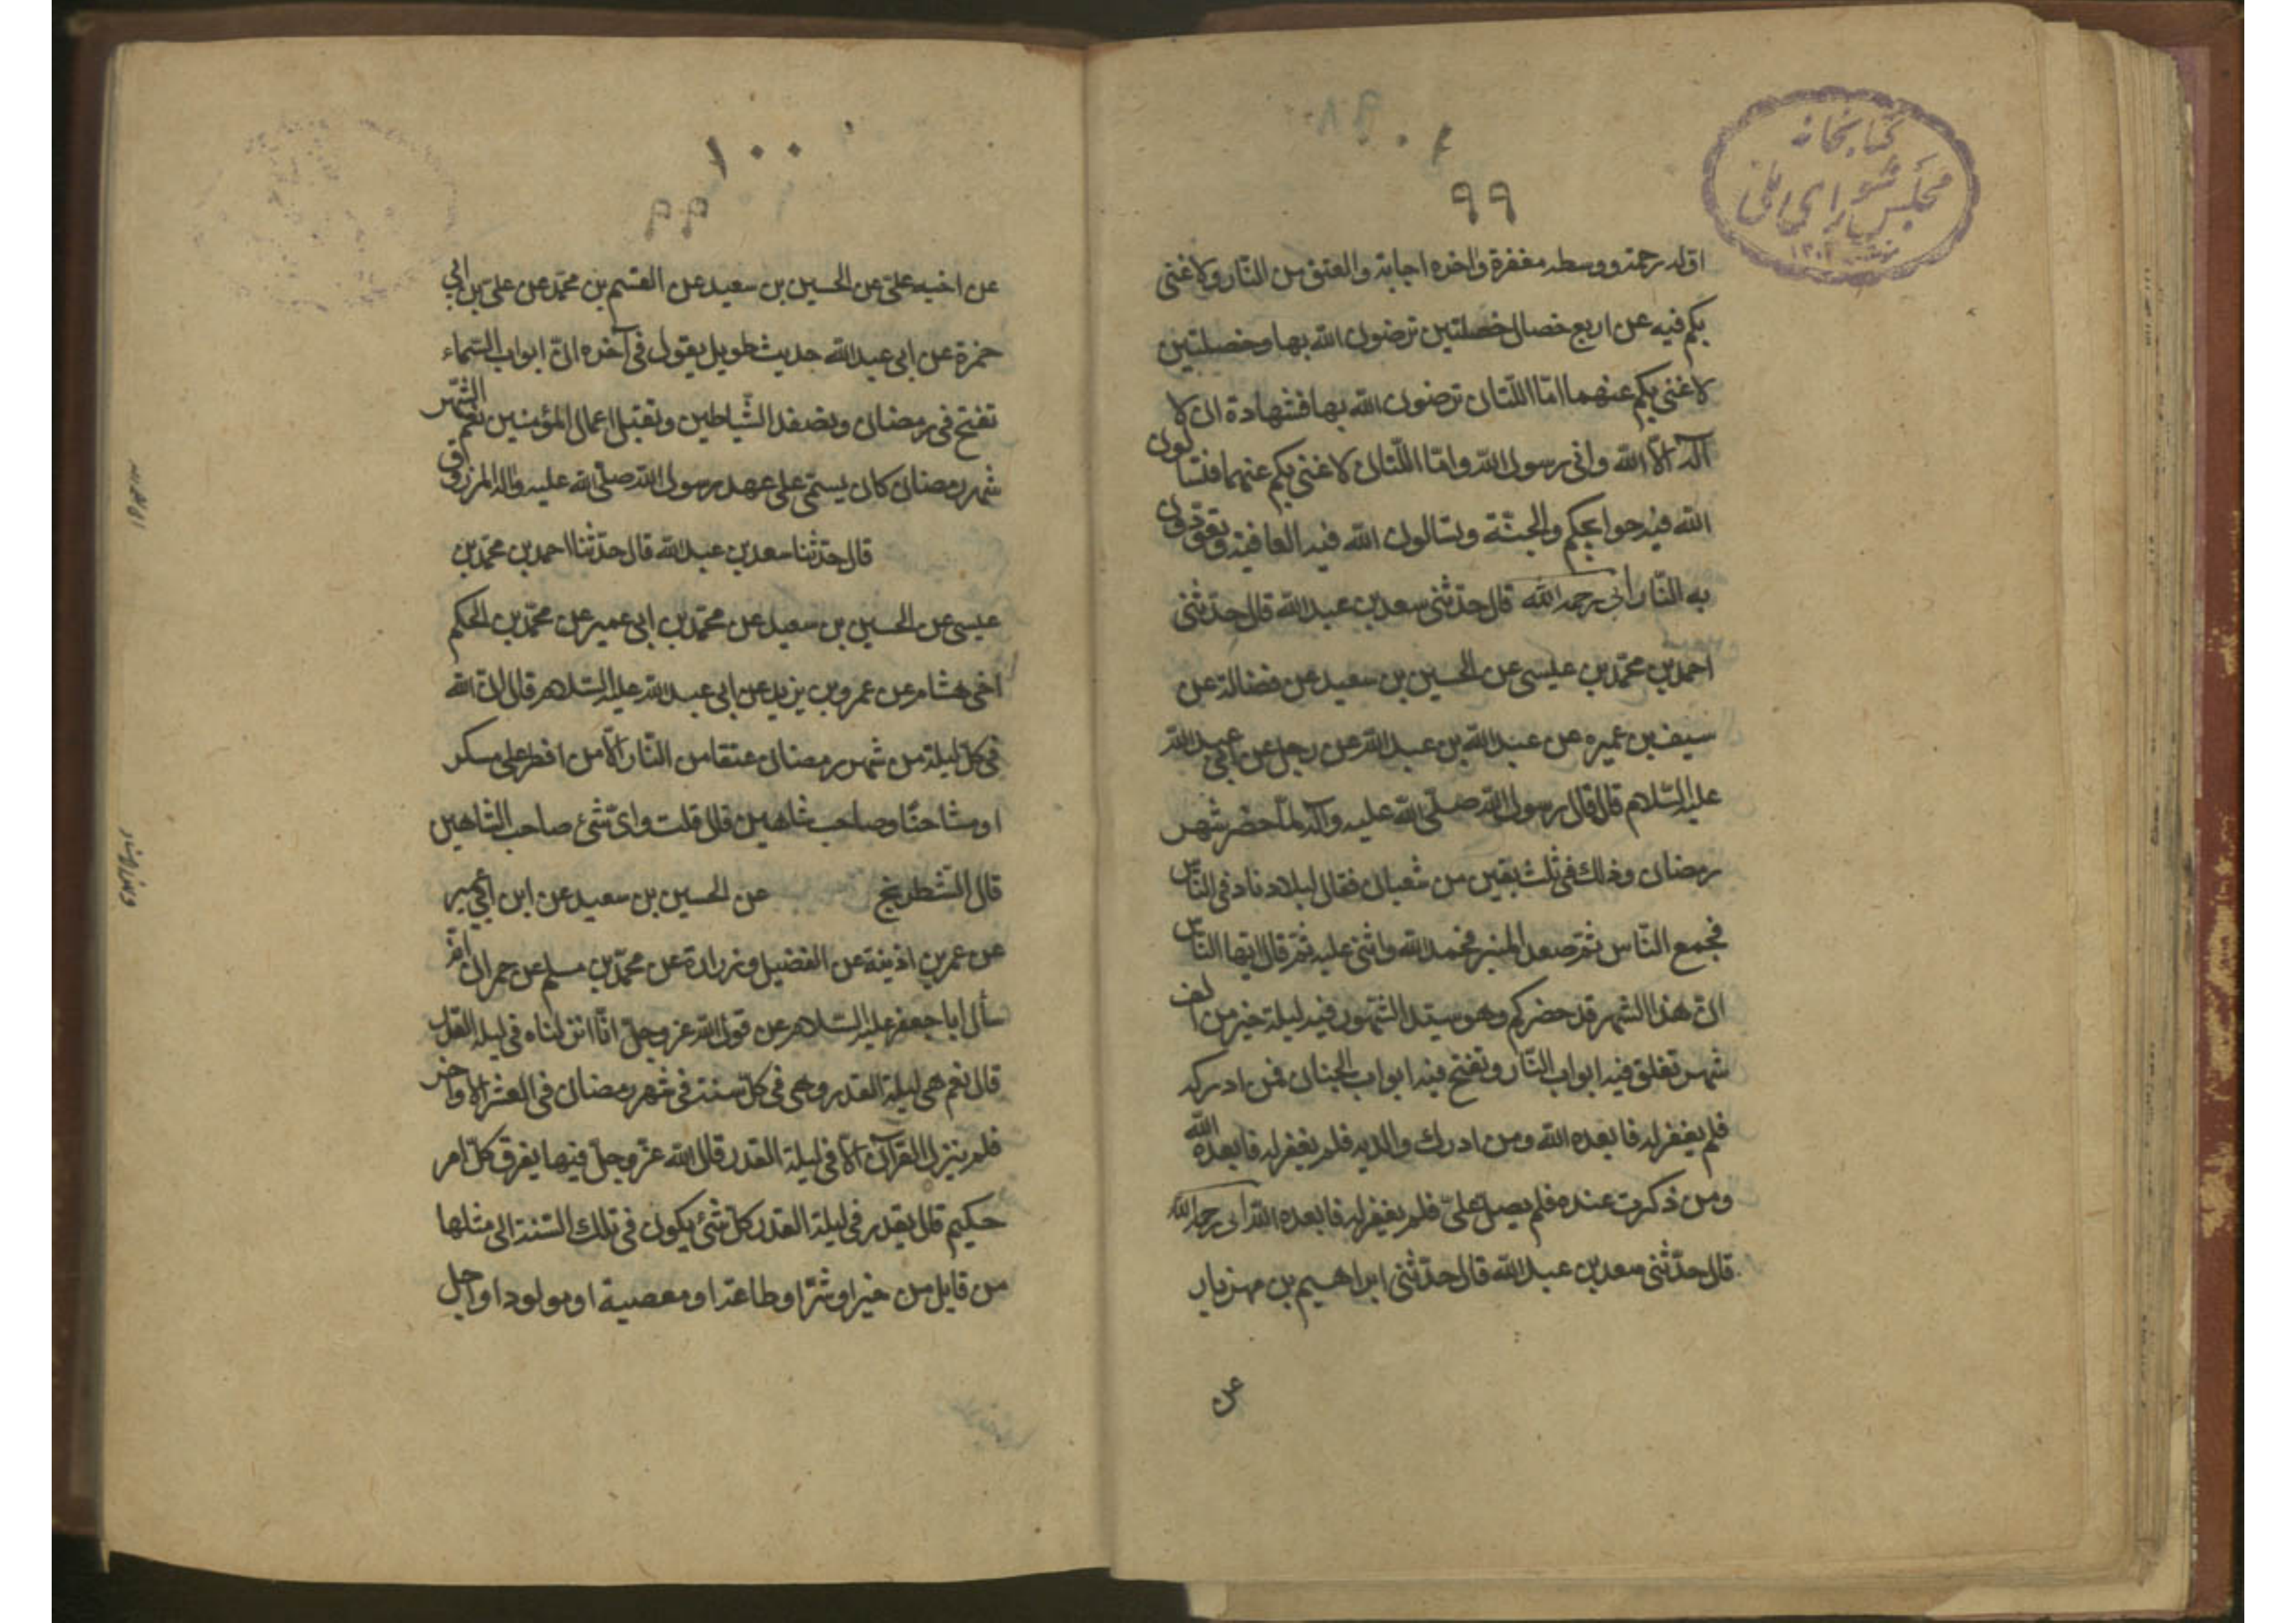 كتابخانه
مجلس شوراي ملي
٩٩
اوله رحمة ووسطه مغفرة واخره اجابة والعتق من النّار ولا غنى
بكم فيه عن اربع خصال خصلتين ترضون الله بها وخصلتين
لا غنى بكم عنهما امّا اللّتان ترضون الله بها فشهادة ان لا
آله الّا الله وانى رسول الله وامّا اللّتان لا غنى بكم عنهما فتسالون
الله فيه حوايجكم والجنّة وتسالون الله فيه العافية وتعوذون
به النّار ابى رحمه الله قال حدّثنى سعد بن عبد الله قال حدّثنى
احمد بن محمّد بن عيسى عن الحسين بن سعيد عن فضالة عن
سيف بن عميره عن عبد الله بن عبد الله عن رجل عن ابى عبد الله
عليه السّلام قال قال رسول الله صلّى الله عليه وآله لمّا حضر شهر
رمضان وذلك فى ثلث بقين من شعبان فقال لبلال ناد فى النّاس
فجمع النّاس ثمّ صعد المنبر فحمد الله واثنى عليه ثمّ قال ايّها النّاس
انّ هذا الشهر قد حضركم وهو سيّد الشّهور فيه ليلة خير من الف
شهر تغلق فيه ابواب النّار وتفتح فيه ابواب الجنان فمن ادركه
فلم يغفر له فابعده الله ومن ادرك والديه فلم يغفر له فابعده الله
ومن ذكرت عنده فلم يصل علىّ فلم يغفر له فابعده الله ابى رحمه الله
قال حدّثنى سعد بن عبد الله قال حدّثنى ابراهيم بن مهزيار
عن
١٠٠
عن اخيه علىّ عن الحسين بن سعيد عن القسم بن محمّد عن علىّ بن ابى
حمزة عن ابى عبد الله حديث طويل يقول فى آخره انّ ابواب السّماء
تفتح فى رمضان وتصفد الشّياطين وتقبل اعمال المؤمنين نعم الشّهر
شهر رمضان كان يسمّى على عهد رسول الله صلّى الله عليه وآله المرزوق
قال حدّثنا سعد بن عبد الله قال حدّثنا احمد بن محمّد بن
عيسى عن الحسين بن سعيد عن محمّد بن ابى عمير عن محمّد بن الحكم
اخى هشام عن عمرو بن يزيد عن ابى عبد الله عليه السّلام قال انّ الله
فى كلّ ليلة من شهر رمضان عتقا من النّار الّا من افطر على مسكر
او مشاحنّا وصاحب شاهين قال قلت واىّ شئ صاحب الشّاهين
قال الشّطرنج عن الحسين بن سعيد عن ابن ابى عمير
عن عمر بن اذينة عن الفضيل وزرارة عن محمّد بن مسلم عن حمران انّه
سأل ابا جعفر عليه السّلام عن قول الله عز وجلّ انّا انزلناه فى ليلة القدر
قال نعم هى ليلة القدر وهى فى كلّ سنة فى شهر رمضان فى العشر الاواخر
فلم ينزل القرآن الّا فى ليلة القدر قال الله عزّ وجلّ فيها يفرق كلّ امر
حكيم قال يقدر فى ليلة القدر كلّ شئ يكون فى تلك السّنة الى مثلها
من قابل من خير او شرّ او طاعة او معصية او مولود او اجل